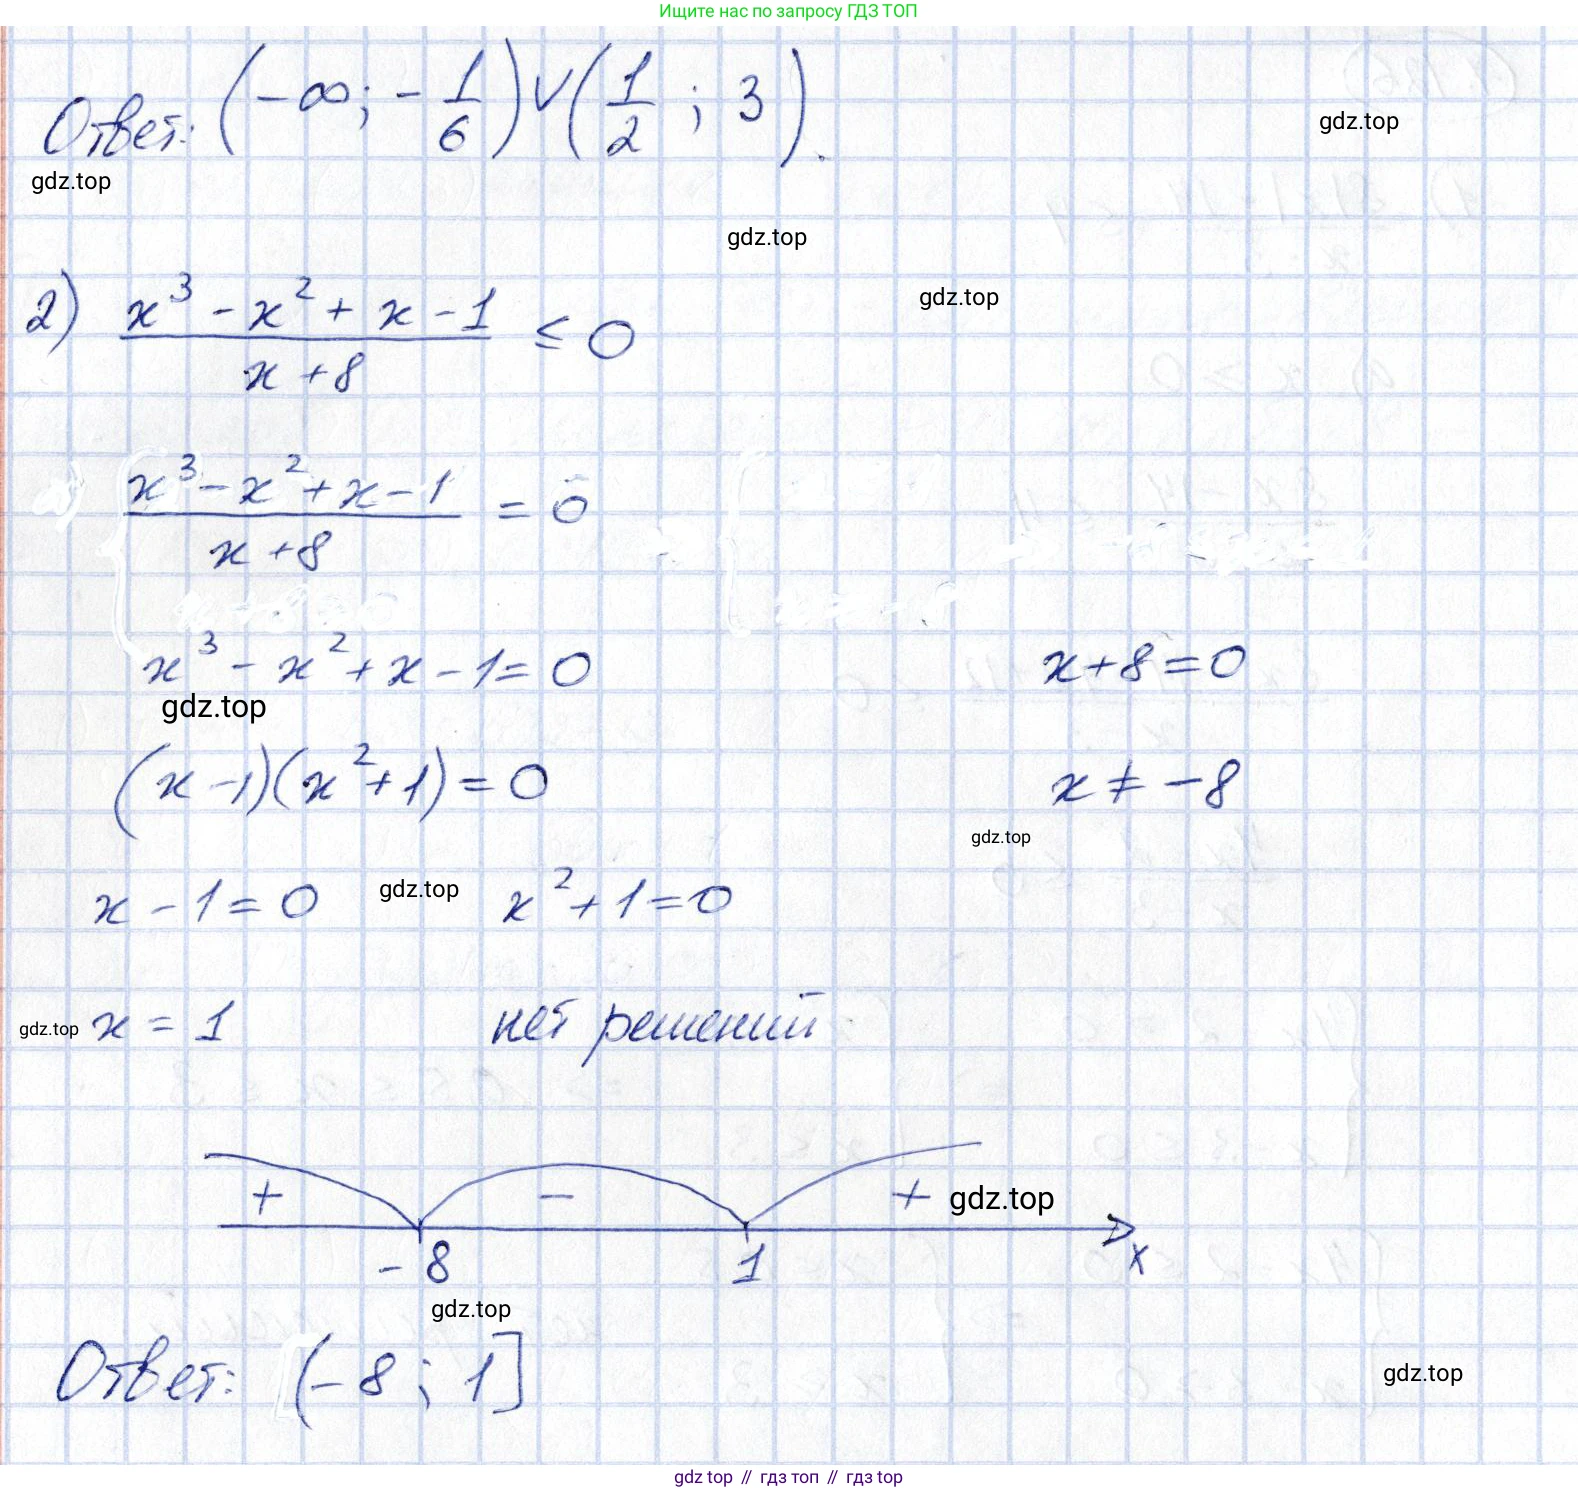 Ищите нас по запросу ГДЗ ТОП
Ответ: (-∞; -1/6) ∨ (1/2; 3).
gdz.top
gdz.top
gdz.top
2) (x³ - x² + x - 1)/(x + 8) ≤ 0
gdz.top
(x³ - x² + x - 1)/(x + 8) = 0
x³ - x² + x - 1 = 0 x + 8 = 0
gdz.top
(x - 1)(x² + 1) = 0 x ≠ -8
gdz.top
x - 1 = 0 gdz.top x² + 1 = 0
gdz.top x = 1 нет решений
+ - + gdz.top
-8 1 x
gdz.top
Ответ: (-8; 1]
gdz.top
gdz top // гдз топ // гдз top